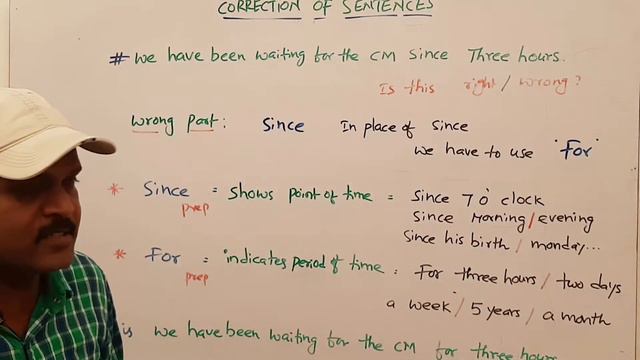 CORRECTION OF SENTENCES
# we have been waiting for the CM since Three hours.
Is this right / wrong?
Wrong Part: Since In place of since
we have to use "For"
* Since = shows point of time = since 7 o' clock
prep
since Morning / evening
Since his birth / monday...
* For = indicates period of time = For three hours / two days
prep
a week / 5 years / a month
is we have been waiting for the CM for three hours